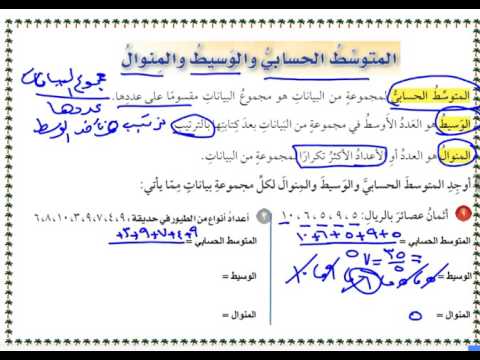 المتوسِّطُ الحسابيُّ والوَسيطُ والمِنوالُ
مجموع البيانات
عددها
المتوسِّطُ الحسابيُّ لمجموعةٍ من البياناتِ هو مجموعُ البياناتِ مقسومًا على عددِها.
الوَسيطُ هو العَددُ الأوسطُ في مجموعةٍ من البَياناتِ بعدَ كتابتِها بالترتيبِ
نرتب ثم نأخذ الوسط
المنوالُ هو العددُ أو الأعدادُ الأكثرُ تكرارًا لمجموعةٍ من البياناتِ.
أوجدِ المتوسطَ الحسابيَّ والوَسيطَ والمنوالَ لكلِّ مجموعةِ بياناتٍ مِمّا يأتي:
أثمانُ عصائرَ بالريالِ: ٥، ٩، ٥، ٦، ١٠
المتوسط الحسابي = ٥+٩+٥+٦+١٠
٥
= ٣٥
٥
= ٧
الوسيط = ٥، ٥، ٦، ٩، ١٠
المنوال = ٥
٢ أعدادُ أنواع من الطيور في حديقة: ٩، ٤، ٧، ٩، ٣، ١٠، ٨، ٦
المتوسط الحسابي = ٩+٤+٧+٩+٣+
الوسيط =
المنوال =